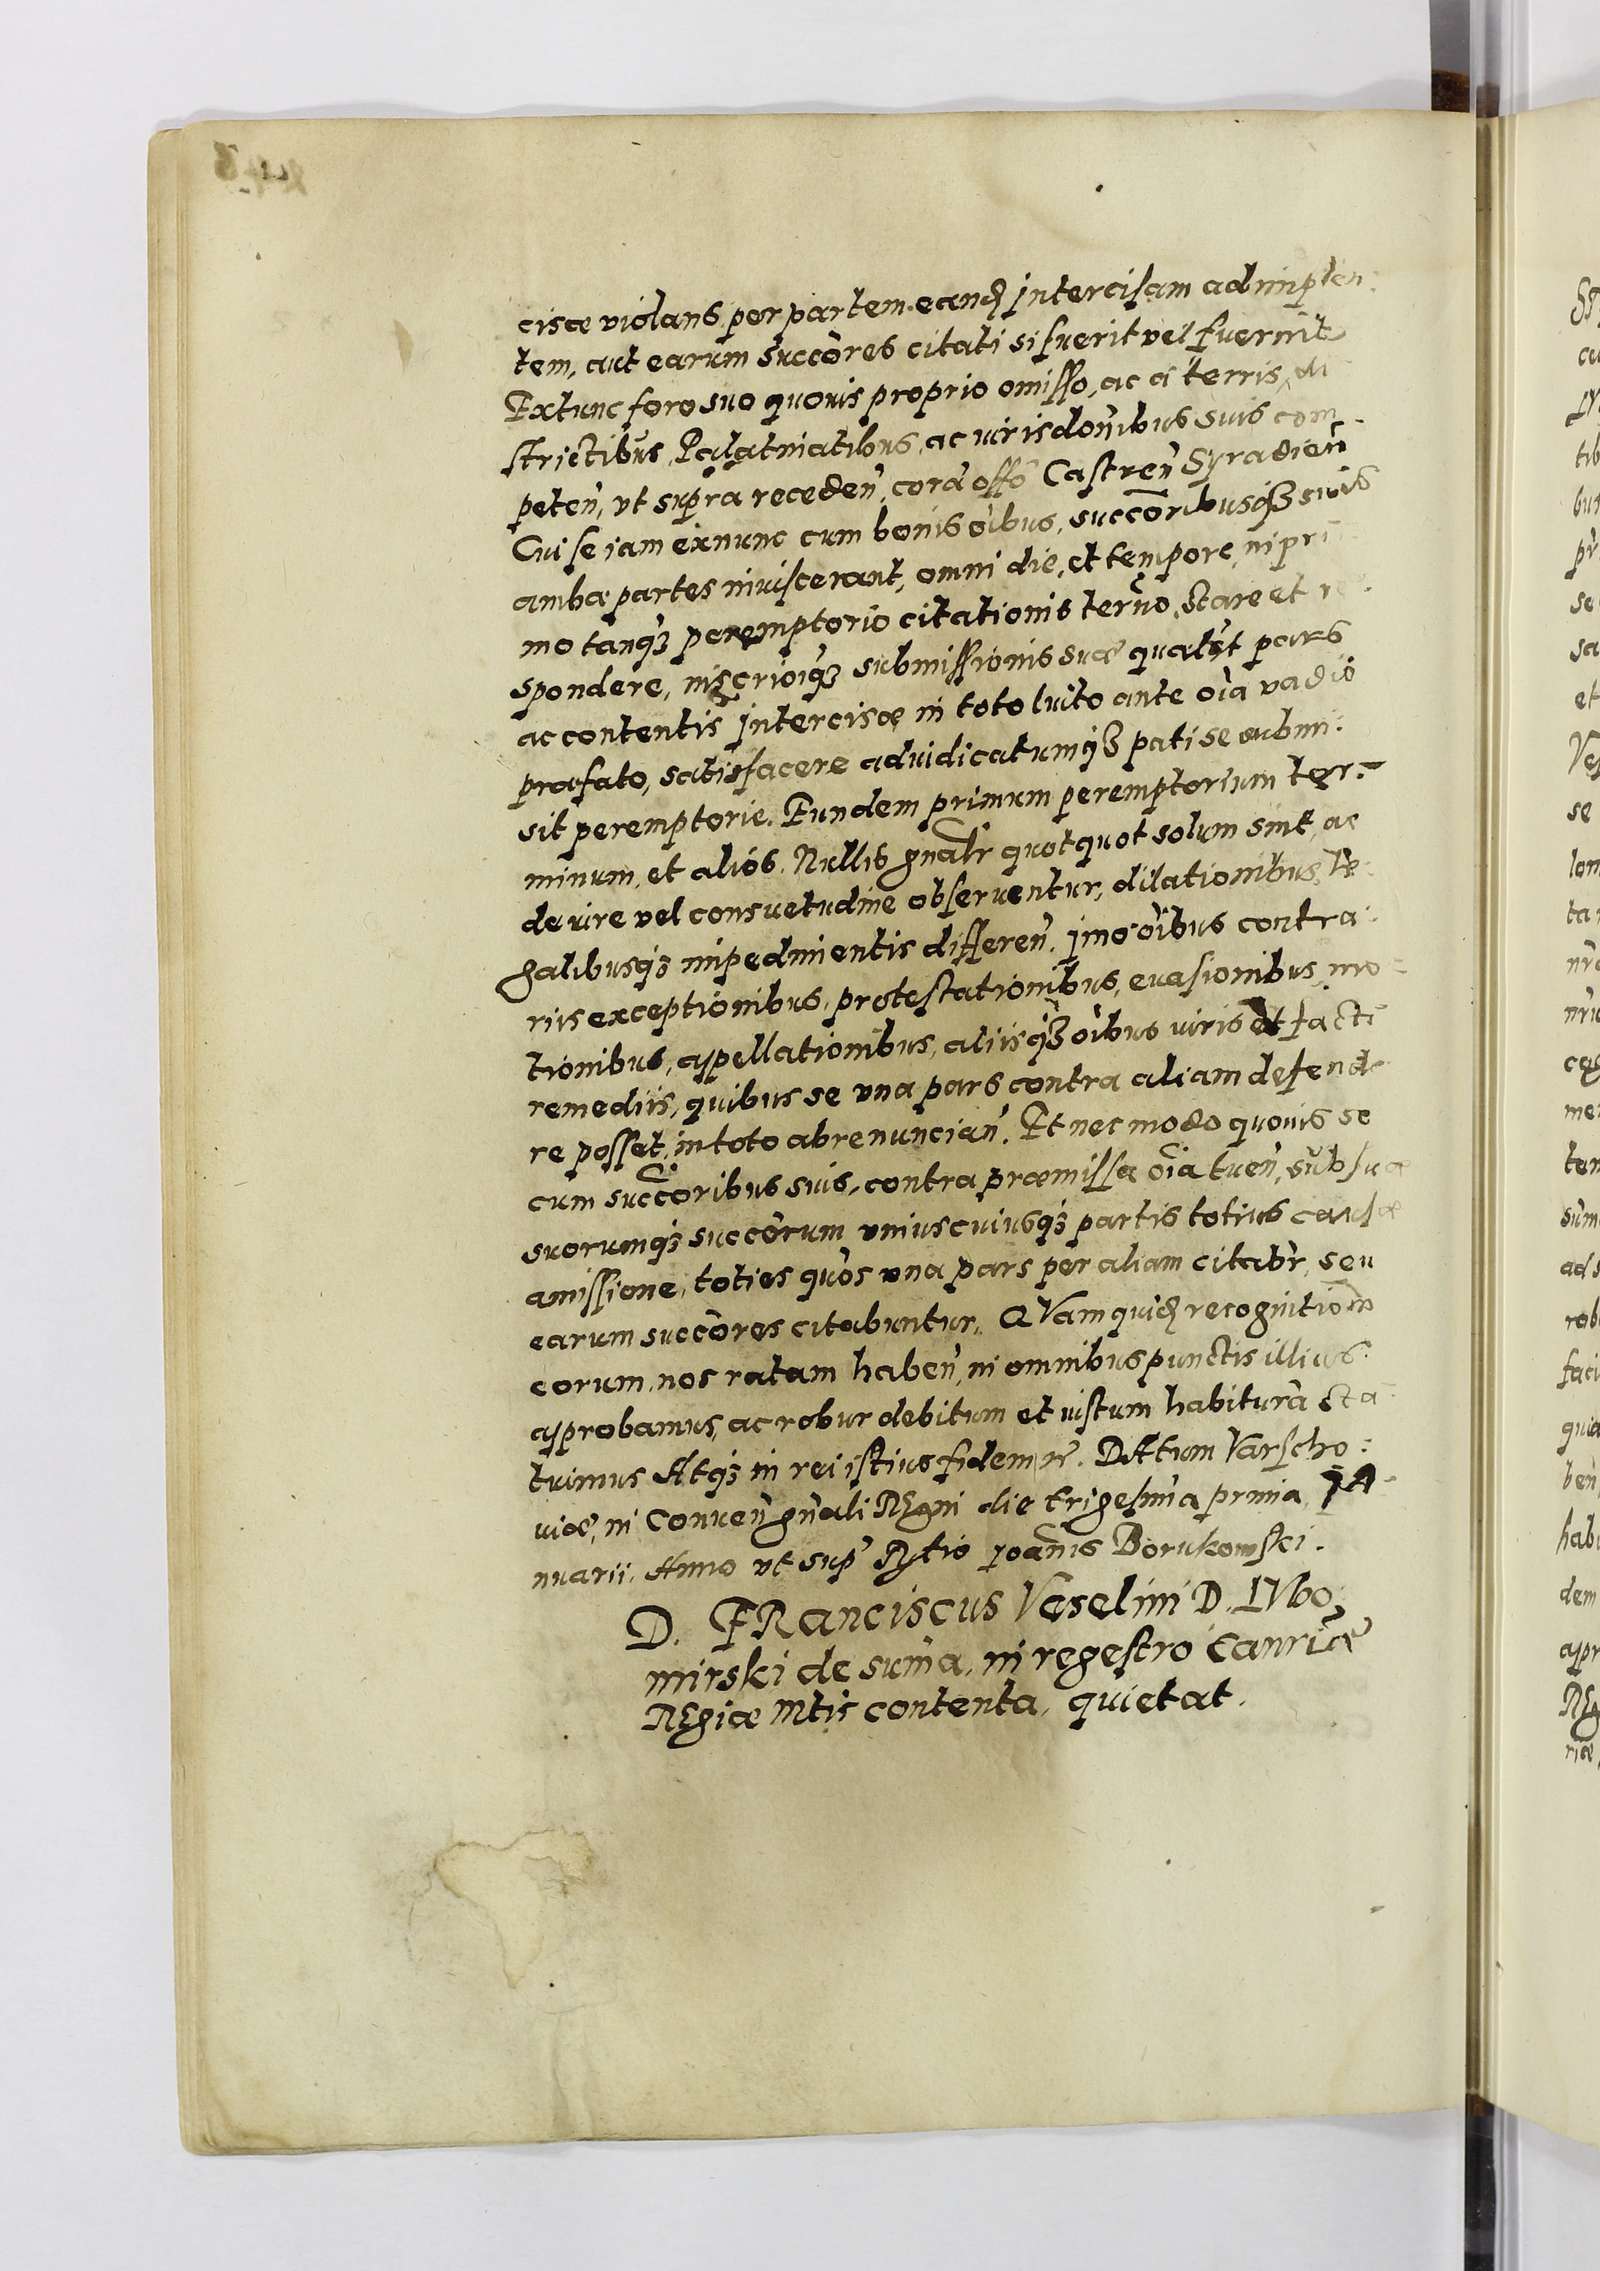 cisæ violans, per partem eandꝫ intercisam adimplen:
tem, aut earum succ̃ores citati si fuerit vel fuerint
Extunc foro suo quovis proprio omisso, ac a terris, di
strictibus, Palatinatibus, ac iurisdõnibus suis com
peteñ, vt supra recedeñ, corã offõ Castreñ Syradieñ
Cui se iam exnunc cum bonis õibus, succ̃oribusqꝫ suis
ambæ partes inviscerant, omni die, et tempore, in pri
mo tanqꝫ peremptorio citationis terño, stare et re
spondere, inscriõiqꝫ submissionis suæ qualr̃t pars
ac contentis intercisæ in toto luito ante oĩa vadio
præfato, satisfacere adiudicatumqꝫ pati se submi:
sit peremptorie. Eundem primum peremptorium ter:
minum, et alios. Nullis gñalr quotquot solum sint, ac
de iure vel consuetudine observentur, dilationibus, le
galibusqꝫ impedimentis differeñ. imo õibus contra
riis exceptionibus, protestationibus, evasionibus, mo
tionibus, appellationibus, aliisqꝫ õibus iuris et facti
remediis, quibus se vna pars contra aliam defende
re posset, in toto abrenunciañ. Et nec modo quovis se
cum succ̃oribus suis, contra præmissa oĩa tueñ, sub suæ
suorumqꝫ succ̃orum vniuscuiusqꝫ partis totius causæ
amissione, toties quõs vna pars per aliam citabr̃, seu
earum succ̃ores citabuntur. QVam quidꝫ recognitiõm
eorum, nos ratam habeñ, in omnibus punctis illius
approbamus, ac robur debitum et iustum habiturã sta
tuimus Atqꝫ in rei istius fidem rẽ. DAtum Varscho:
uiæ, in Conueñ gñali REgni die trigesima prima, JA
nuarii. Anno vt sup̃ REltio Joãnis Borukowski.
D. FRanciscus Veselini D. LVbo
mirski de sum̃a, in regestro Canriæ
REgiæ Mtis contenta, quietat.